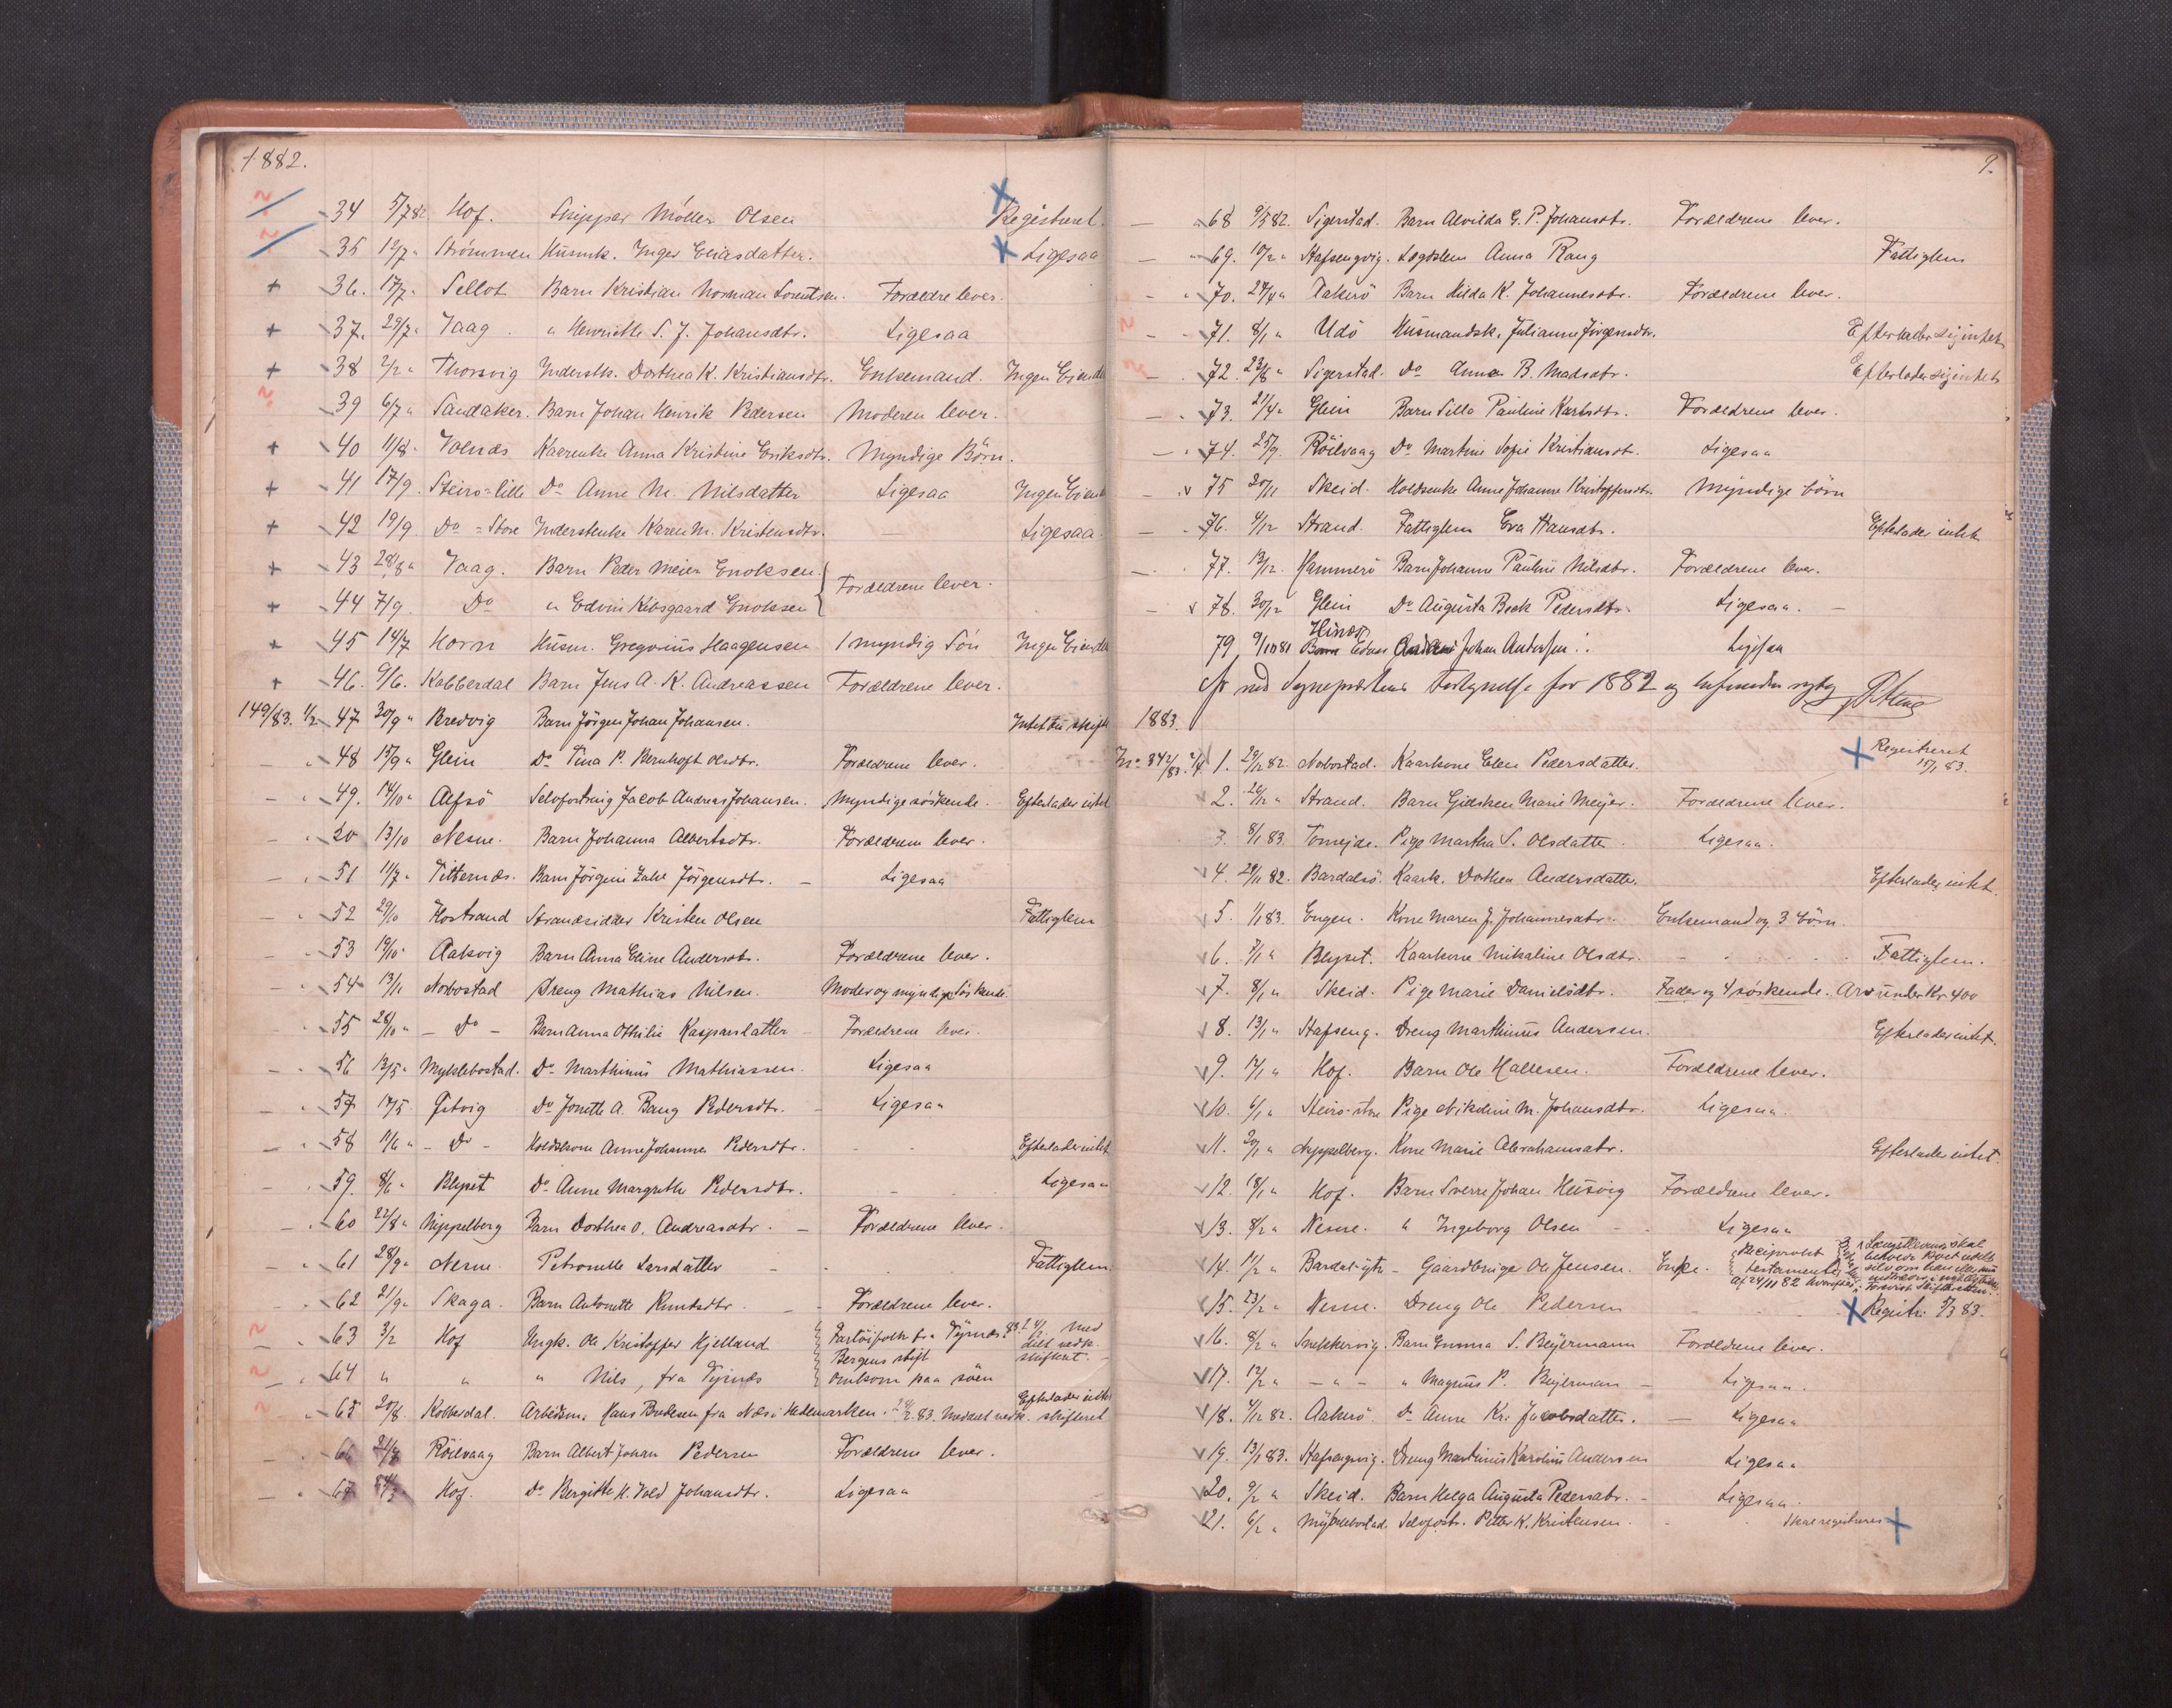 1882.
34 5/7 82 Hof. Skipper Möller Olsen Registreret.
35 12/7 " Strømmen Husmk. Inger Eliasdatter. Ligesaa
+ 36. 17/7 " Sellot Barn Kristian Norman Lorentsen. Forældre lever.
+ 37. 29/7 " Vaag. " Henriette S. J. Johansdtr. Ligesaa
+ 38 2/2 " Thorsvig Inderstk. Dorthea K. Kristiansdtr. Enkemand. Ingen Eiendele
39 6/7 " Sandaker. Barn Johan Henrik Pedersen Moderen lever.
+ 40 11/8 " Valnæs Kaarenke Anna Kristine Eriksdtr. Myndige Börn.
+ 41 17/9. Steirö-lille Do Anne M. Nilsdatter Ligesaa Ingen Eiendele
+ 42 19/9 Do = Store Inderstenke Karen M. Kristensdtr. Ligesaa.
+ 43 28/8 " Vaag. Barn Peder Meier Enoksen
+ 44 7/9. Do " Edvin Kibsgaard Enoksen Forældrene lever.
+ 45 14/7 Horn Husm. Gregorius Haagensen 1 myndig Sön Ingen Eiendele
+ 46. 9/6. Kobberdal Barn Jens A. K. Andreassen Forældrene lever.
149/83. 1/2 47 30/9 " Bredvig Barn Jörgen Johan Johansen. Intet til skifte
— " 48 15/9 " Glein Do Tina P. Bernhoft Olsdtr. Forældrene lever.
— " 49. 14/10 " Alfsö Selvfostring Jacob Andreas Johansen. Myndige söskende. Efterlader intet
— " 50 13/10 Nesne. Barn Johanna Albertsdtr. Forældrene lever.
— " 51 11/7 " Titternæs. Barn Jörgine Jörgensdtr. — Ligesaa
— " 52 29/10 Kostrand Strandsidder Kristen Olsen Fattiglem
— " 53 19/10 " Aaksvig Barn Anna Eline Andersdtr. Forældrene lever.
— " 54 13/11 Nobostad Dreng Mathias Nilsen. Moder og myndige Söskende.
— " 55 28/10 " — Do — Barn Anna Othilie Kaspersdatter Forældrene lever.
— " 56 13/5 " Myklebostad. Do Marthinus Mathiassen. Ligesaa
— " 57 17/5 Östvig Do Jonette A. Bang Pedersdtr. Ligesaa
— " 58 11/6 " — Do — Holdskone Anne Johanna Pedersdtr. Efterlader intet
— " 59. 8/6 " Blyset Do Anne Margrethe Pedersdtr. Ligesaa
— " 60 22/8 " Nippelberg Barn Dorthea O. Andreasdtr. — Forældrene lever.
— " 61 28/9 " Nesne Petronelle Larsdatter — Fattiglem.
— " 62 21/9 " Skaga. Barn Antonette Knutsdtr. Forældrene lever.
— " 63 3/2 Hof Ungk. Ole Kristoffer Hjelland Fartöifolk fra Tysnæs Med
Bergens stift skifteret.
— " 64 " " " Nils, fra Tysnæs omkom paa söen
" 65 20/8. Kobberdal. Arbeidsm. Hans Bredesen fra Næs i Hedemarken. Efterlader intet skifteret
— " 66 21/9 Röilvaag Barn Albert Johan Pedersen Forældrene lever.
— " 67 Hof. Do Bergitte K. Vold Johansdtr. Ligesaa
9.
— " 68 9/5 82. Sigerstad. Barn Alvilda G. P. Johansdtr. Forældrene lever.
— " 69. 10/2 " Hafsengvig. Lægdslem Anna Rang Fattiglem
— " 70. 24/4 " Aakerö Barn Hilda K. Johannesdtr. Forældrene lever.
— " 71. 8/1 " Udö Husmandsk. Julianne Jörgensdtr. Efterlader sig intet
— " 72. 23/8 " Sigerstad. Do Anna B. Madsdtr. Efterlader sig intet
— " 73. 21/4 " Glein Barn Silla Pauline Karlsdtr. Forældrene lever.
— " 74. 25/9. Röilvaag Do Martine Sofie Kristiansdtr. Ligesaa
— " 75 20/11 Skeid. Holdsenke Anne Johanne Kristoffersdtr. Myndige börn
— 76. 4/12 Strand. Fattiglem Eva Hansdtr. Efterlader intet
— " 77. 13/12. Hammerö Barn Johanne Pauline Nilsdtr. Forældrene lever.
— v 78. 30/12 Glein Do Augusta Beck Pedersdtr. Ligesaa. —
79 9/10 81 Barn Edvin Johan Andersen. Ligesaa
for 1882 og
1883.
Jno 842/83. 2/4 1. 29/12 82. Nobostad. Kaarkone Elen Pedersdatter. Registreret
15/1 83.
2. 26/12 " Strand. Barn Gidsken Marie Meyer. Forældrene lever.
3. 8/1 83. Tomejde. Pige Martha S. Olsdatter. Ligesaa.
4. 29/11 82. Bardalsö. Kaark. Dorthea Andersdatter. Efterlader intet.
5. 1/1 83. Engen. Kone Maren J. Johannesdtr. Enkemand og 3 börn.
6. 7/1 " Blyset. Kaarkone Mikaline Olsdtr. Fattiglem.
7. 8/1 " Skeid. Pige Marie Danielsdtr. Fader og 4 söskende. Arv under Kr. 400
8. 13/1 " Hafseng. Dreng Marthinus Andersen. Efterlader intet.
9. 12/1 " Hof. Barn Ole Hallesen. Forældrene lever.
10. 6/1 " Steirö-store Pige Nikoline M. Johansdtr. Ligesaa.
11. 20/1 " Nyppelberg. Kone Marie Abrahamsdtr. Efterlader intet.
12. 18/1 " Hof. Barn Sverre Johan Husvig Forældrene lever.
13. 8/2 " Nesne. " Ingeborg Olsen Ligesaa
14. 11/2 " Bardal-ytr. — Gaardbruger Ole Jensen. Enke. Reciprokt testamente af 24/11 82 Længstlevende skal
15. 23/2 " Nesne. Dreng Ole Pedersen Registr. 5/3 83.
16. 8/2 " Snekkervig. Barn Emma S. Beyermann Forældrene lever.
17. 12/2 " — " — " Magnus P. Beyerman — Ligesaa.
18. 4/12 82. Aakerö. Do Anne Kr. Jacobsdatter. — Ligesaa
19. 13/1 83. Hafsengvig. Dreng Martinus Karolius Andersen Ligesaa
20. 9/2 " Skeid. Barn Helga Augusta Pedersdtr. — Ligesaa.
21. 6/2 " Myklebostad. Selvfostr. Petter K. Kristensen. Skal registreres